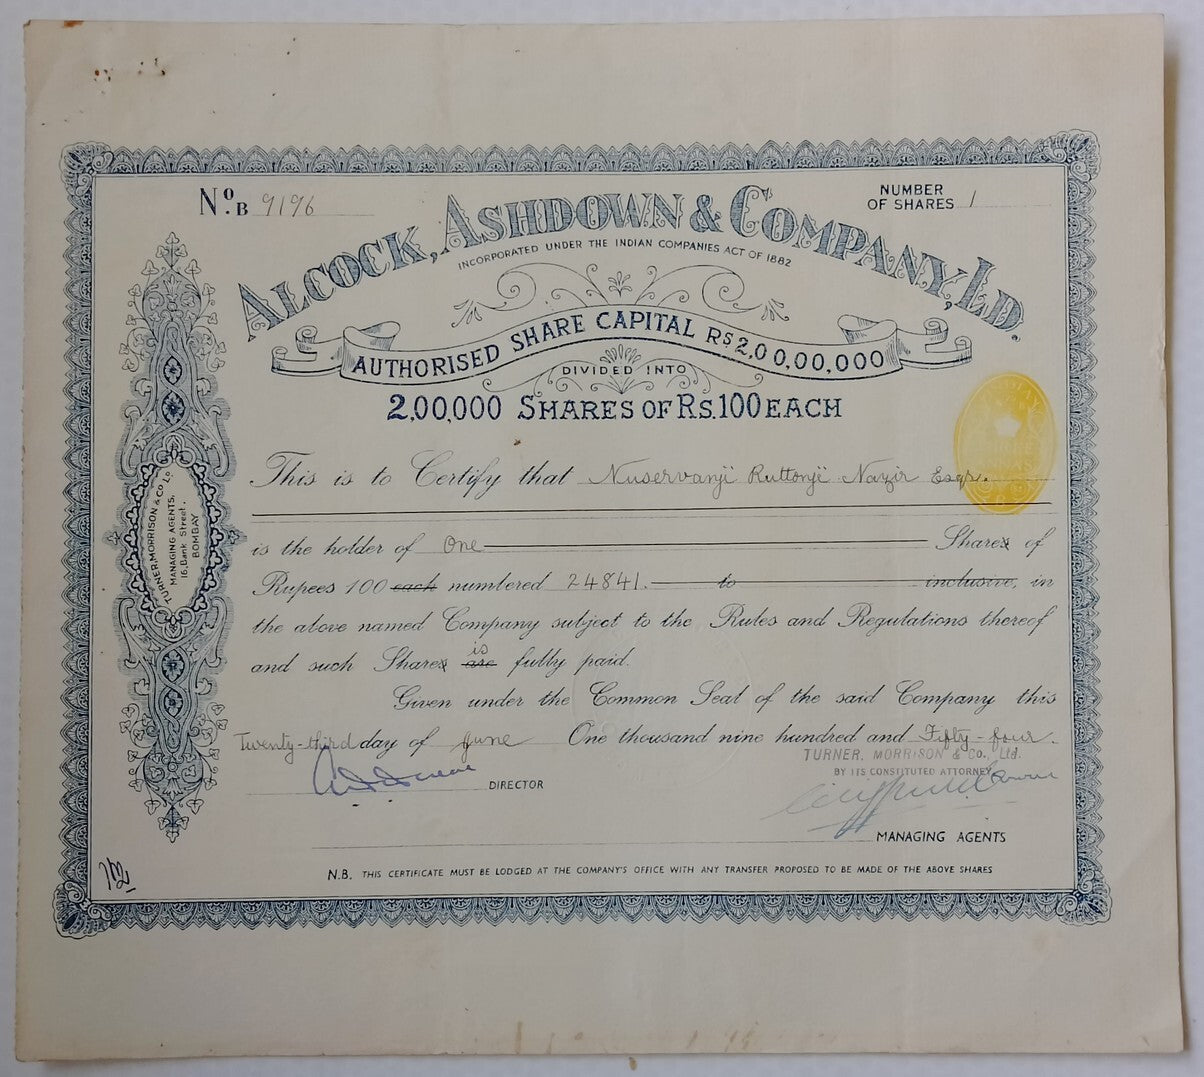 No. B 9196
NUMBER
OF SHARES 1
ALCOCK, ASHDOWN & COMPANY, LD.
INCORPORATED UNDER THE INDIAN COMPANIES ACT OF 1882
AUTHORISED SHARE CAPITAL RS 2,00,00,000
DIVIDED INTO
2,00,000 SHARES OF RS. 100 EACH
This is to Certify that Nuservanji Ruttonji Nazir Esqr.
is the holder of One Shares of
Rupees 100 each numbered 24841. to inclusive, in
the above named Company subject to the Rules and Regulations thereof
is
and such Shares are fully paid.
Given under the Common Seal of the said Company this
Twenty-third day of June One thousand nine hundred and Fifty-four.
TURNER, MORRISON & Co., Ltd.
BY ITS CONSTITUTED ATTORNEY
DIRECTOR
MANAGING AGENTS
N.B. THIS CERTIFICATE MUST BE LODGED AT THE COMPANY'S OFFICE WITH ANY TRANSFER PROPOSED TO BE MADE OF THE ABOVE SHARES
TURNER, MORRISON & CO LD.
MANAGING AGENTS,
16, Bank Street,
BOMBAY